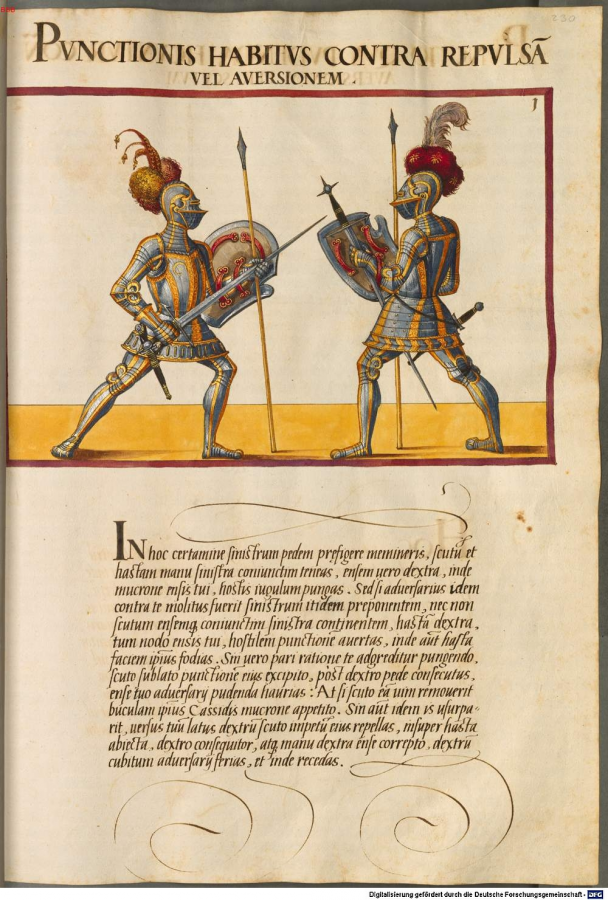 230
PVNCTIONIS HABITVS CONTRA REPVLSÃ
VEL AVERSIONEM.
1
IN hoc certamine sinistrum pedem prefigere memineris, scutũ et
hastam manu sinistra coniunctim teneas, ensem uero dextra, inde
mucrone ensis tui, hostis iugulum pungas. Sed si aduersarius idem
contra te molitus fuerit sinistrum itidem preponentem, nec non
scutum ensemq coniunctim sinistra continentem, hastã dextra,
tum nodo ensis tui, hostilem punctionẽ auertas, inde aut hasta
faciem ipsius fodias. Sin uero pari ratione te adgreditur pungendo,
scuto sublato punctionẽ eius excipito, post dextro pede consecutus,
ense tuo aduersarij pudenda haurias: At si scuto eã uim remouerit
buculam ipsius Cassidis mucrone appetito. Sin aũt idem is usurpa-
rit, uersus tuũ latus dextrũ scuto impetũ eius repellas, insuper hasta
abiecta, dextro consequitor, atq manu dextra ense correpto, dextrũ
cubitum aduersarij ferias, et inde recedas.
Digitalisierung gefördert durch die Deutsche Forschungsgemeinschaft - DFG